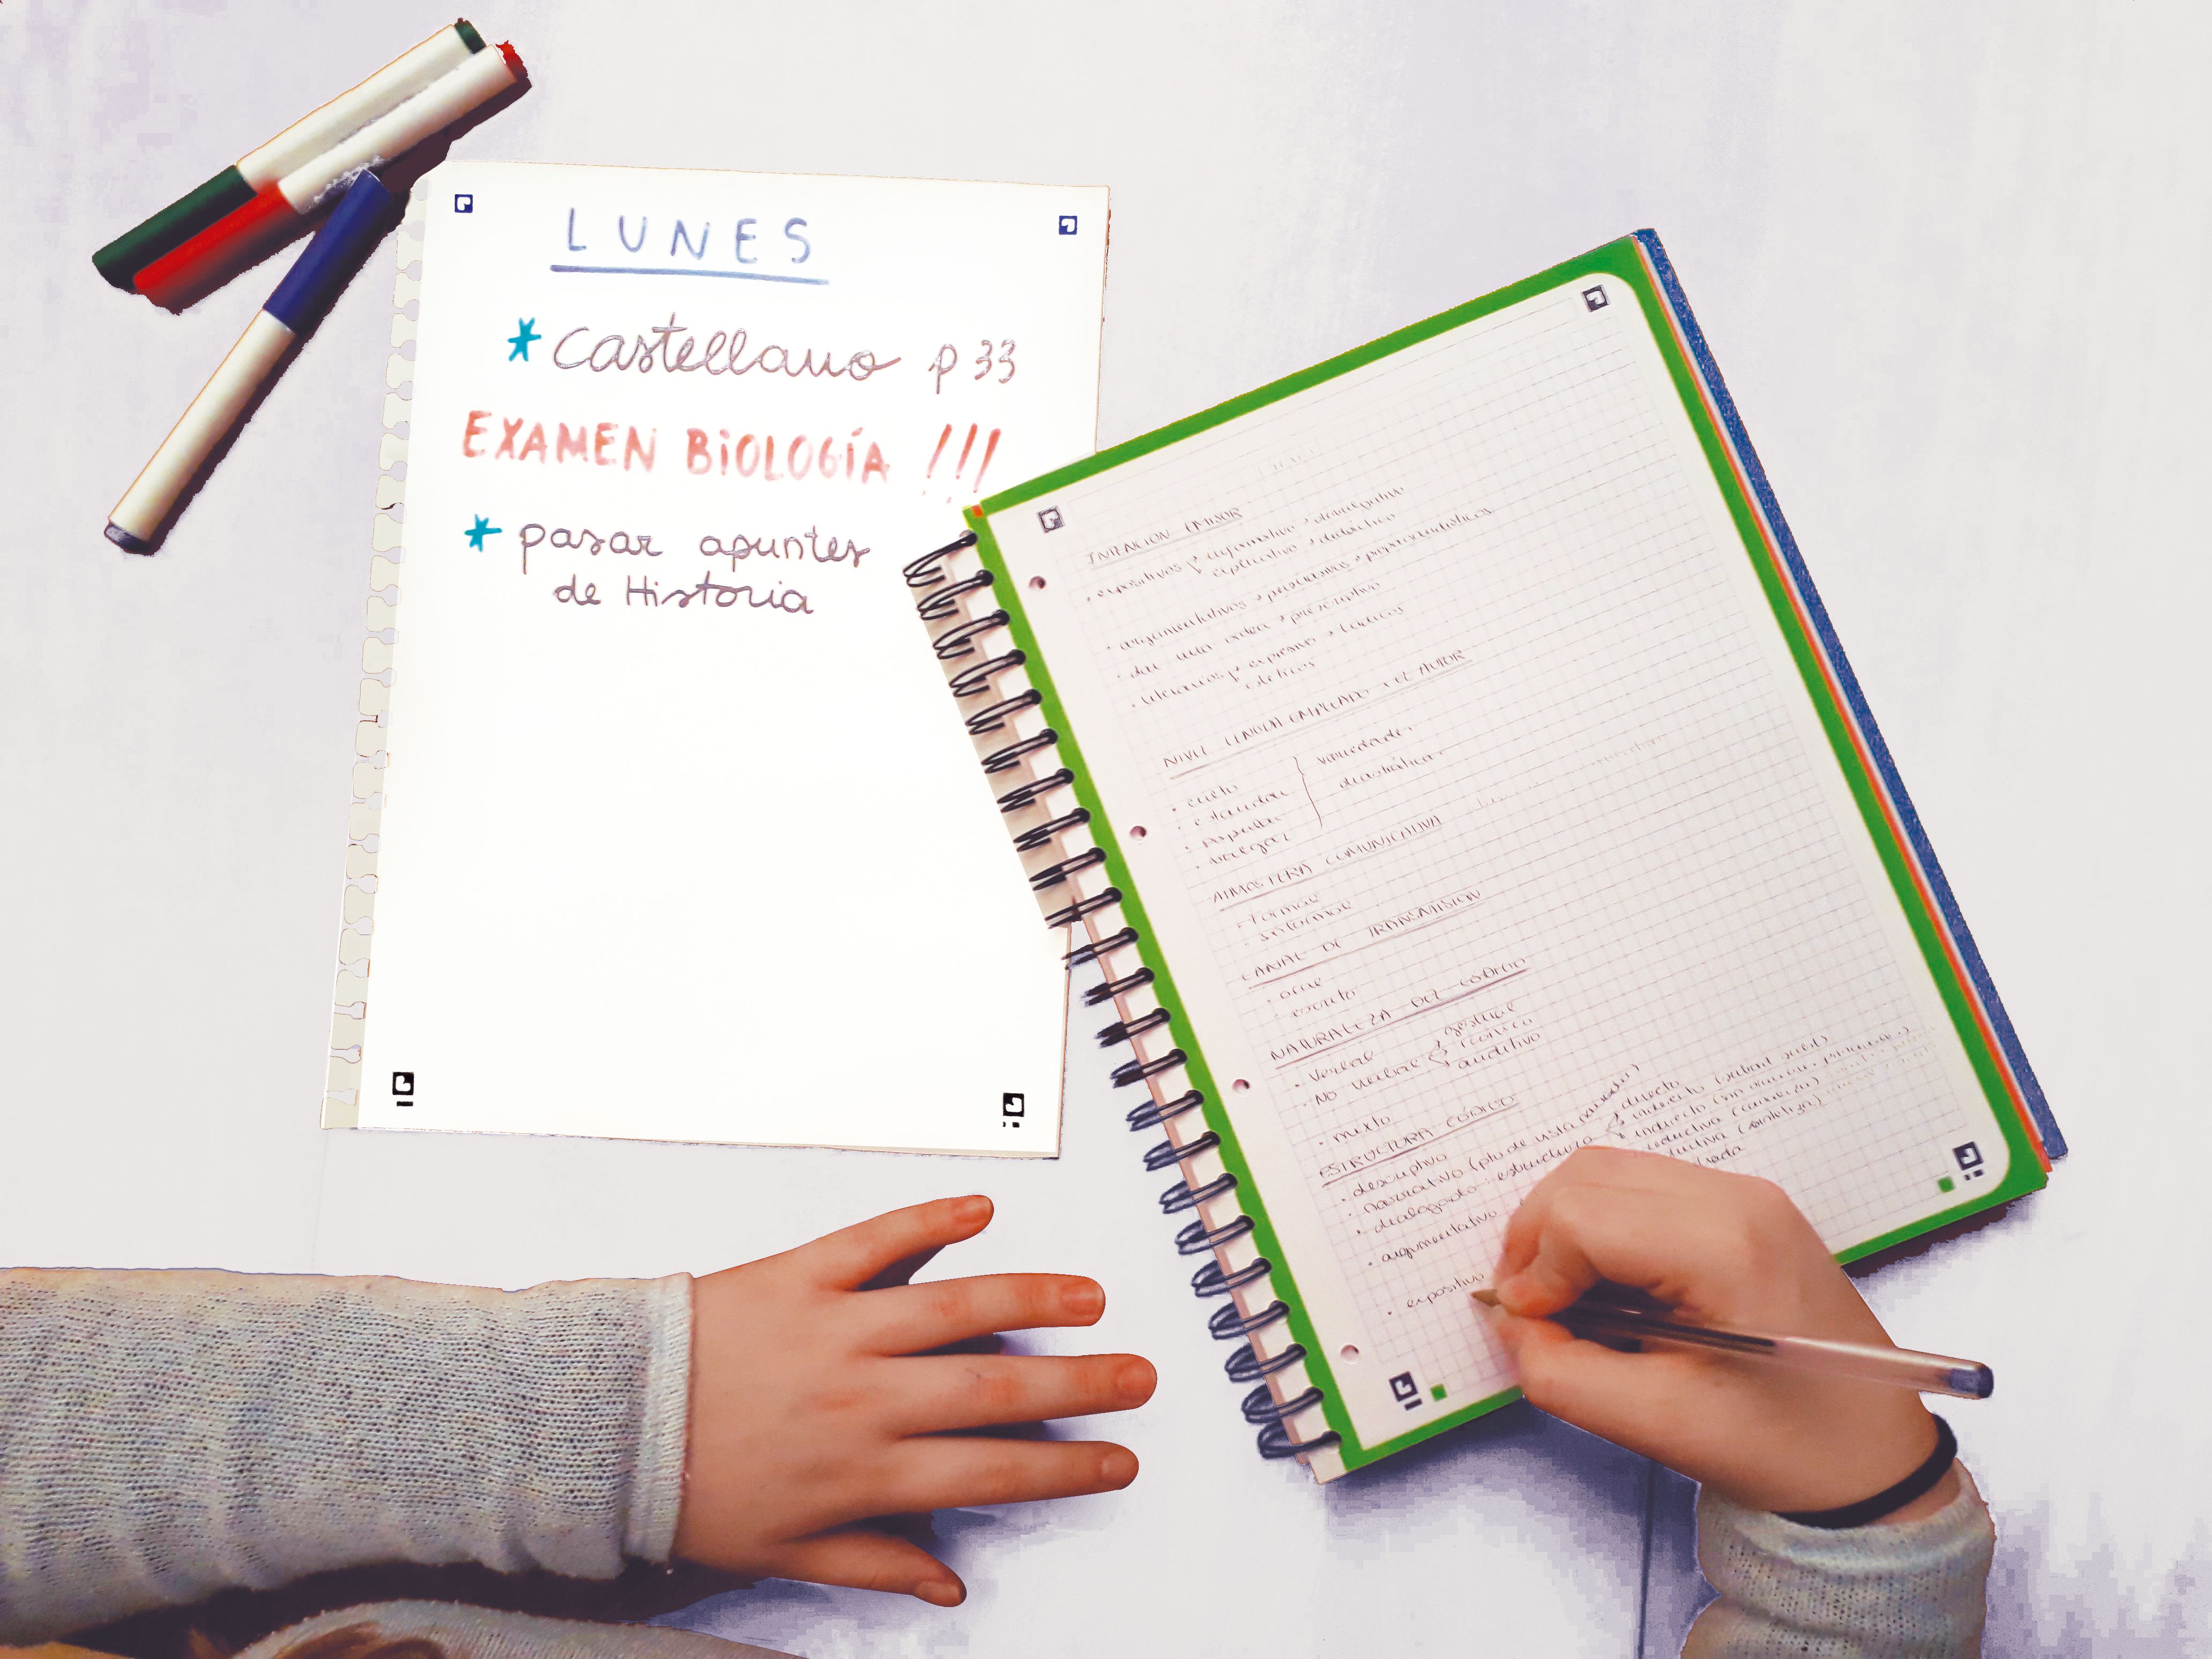 LUNES
* Castellano p 33
EXAMEN BIOLOGÍA !!!
* pasar apuntes
de Historia
INTENCION EMISOR
• expositivos informativo → divulgativo
explicativo → didáctico
• argumentativos → persuasivos → propagandísticos
• dar una orden → prescriptivo
• literarios expresivo → lúdicos
estéticos
NIVEL LENGUA EMPLEADO DEL AUTOR
• culto
• estandar
• popular
• vulgar
variedades
diastráticas
ATMOSFERA COMUNICATIVA
• formal
• informal
CANAL DE TRANSMISION
• oral
• escrito
NATURALEZA DEL CÓDIGO
• verbal
• No verbal gestual
iconico
auditivo
• mixto
ESTRUCTURA CÓDIGO
• descriptivo
• narrativo (pto de vista narrador)
• dialogado: estructura directo
indirecto
• argumentativo
• expositivo